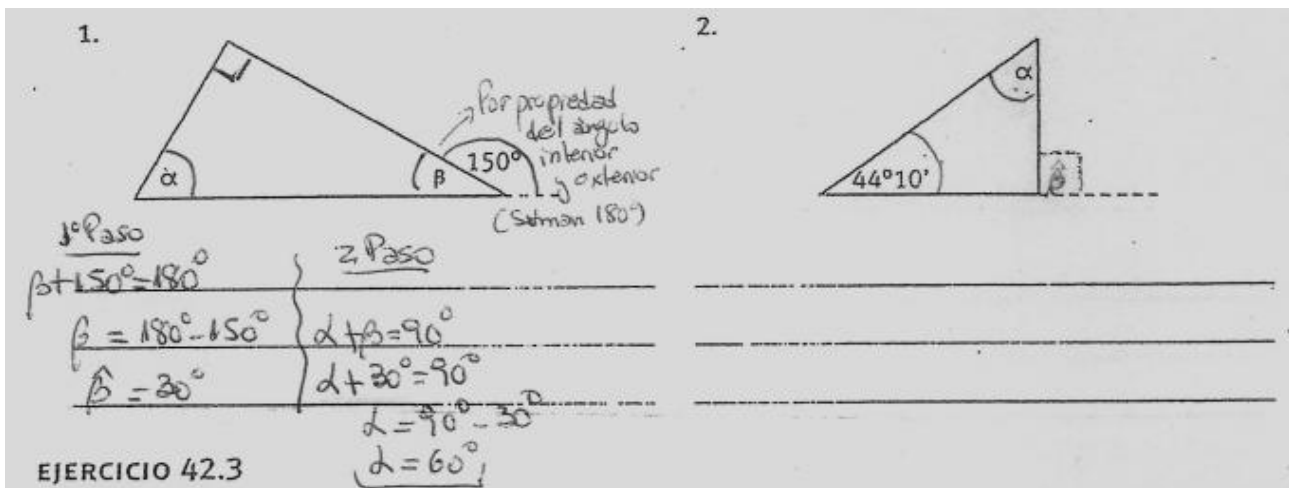 1.
2.
α
β
150°
Por propiedad
del ángulo
interior
exterior
(Suman 180°)
44°10'
α
β̂
1° Paso
β+150°=180°
β = 180°-150°
β̂ = 30°
2 Paso
α+β=90°
α+30°=90°
α = 90° - 30°
α = 60°
EJERCICIO 42.3